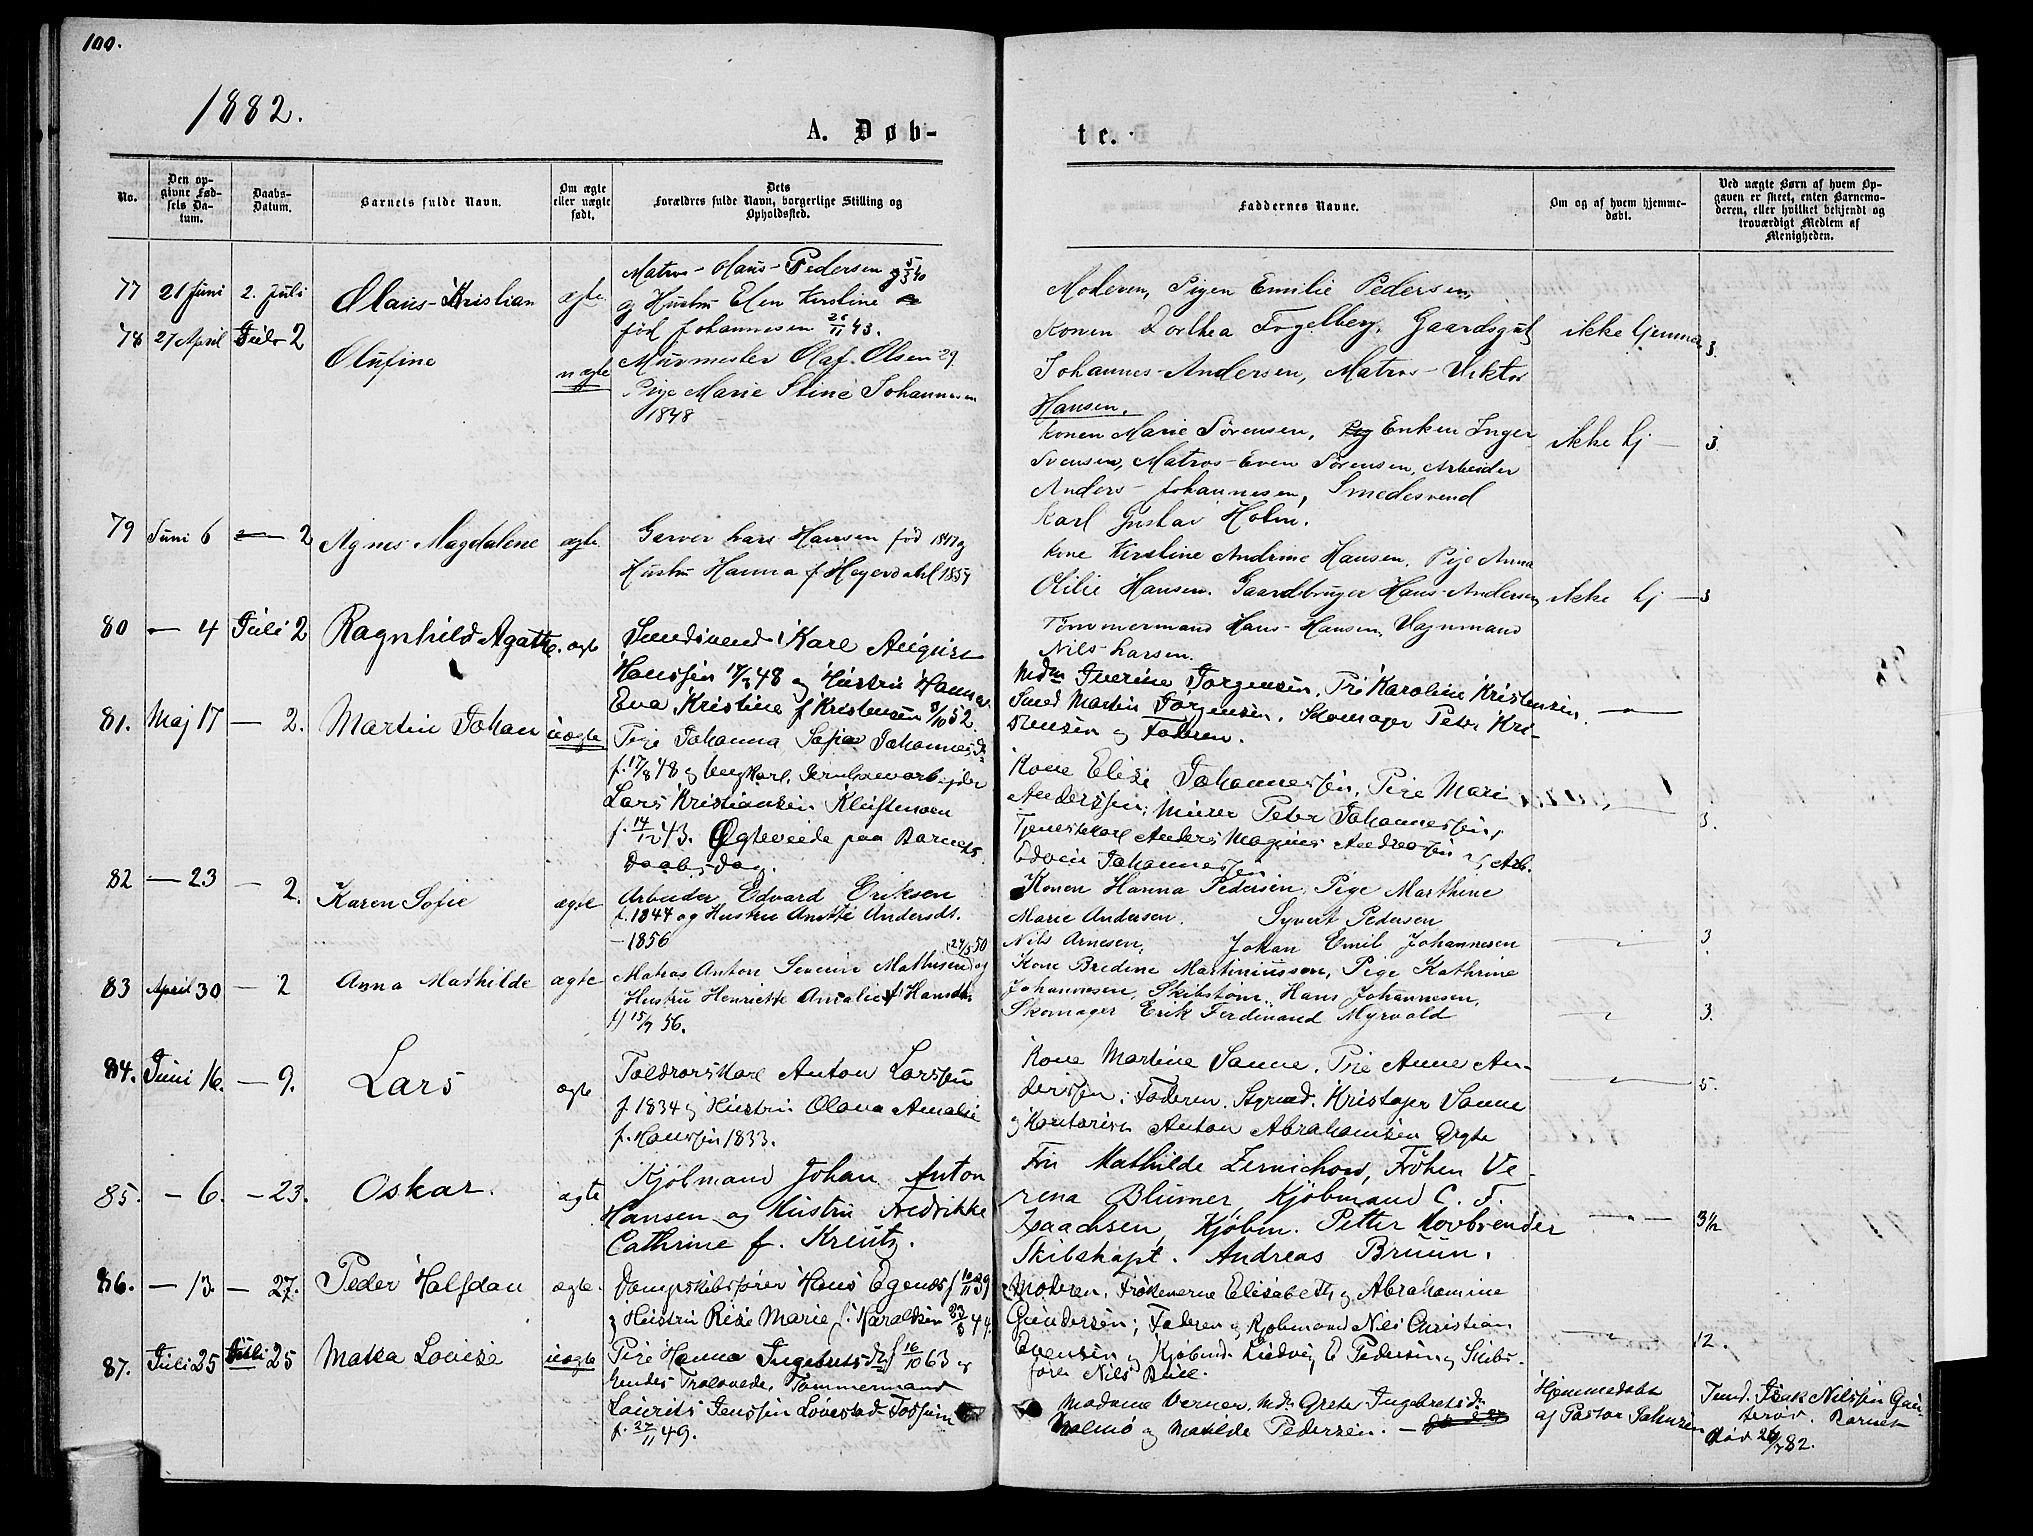 100.
1882.
A. Døb-
te.
No.
Den op-
givne Fød-
sels Da-
tum.
Daabs-
Datum.
Barnets fulde Navn.
Om ægte
eller uægte
født.
Dets
Forældres fulde Navn, borgerlige Stilling og
Opholdssted.
Faddernes Navne.
Om og af hvem hjemme-
døbt.
Ved uægte Børn af hvem Op-
gaven er skeet, enten Barnemo-
deren, eller hvilket bekjendt og
troværdigt Medlem af
Menigheden.
77 21 Juni 2. Juli Olaus Kristian ægte
Matros Olaus Pedersen
og Hustru Elen Kirstine
fød Johannesen 43.
Moderen, Pigen Emilie Pedersen,
Konen Dorthea Fogelberg, Gaardsgut
Johannes Andersen, Matros Viktor
Hansen.
ikke hjemme 3.
78 27 April Juli 2 Olufine uægte
Murmester Olaf Olsen 29.
Pige Marie Stine Johannesen
1848
Konen Marie Sørensen, Enken Inger
Svensen, Matros Even Sørensen, Arbeider
Anders Johannesen, Smedesvend
Karl Gustav Holm.
ikke hj — 3
79 Juni 6 — 2 Agnes Magdalene ægte
Garver Lars Hansen fød 1847 og
Hustru Hanna f. Heyerdahl 1854
Kone Kirstine Andrine Hansen, Pige Anna
Olilie Hansen. Gaardbruger Hans Andersen,
Tømmermand Hans Hansen, Vognmand
Nils Larsen.
ikke hj — 3
80 — 4 Juli 2 Ragnhild Agathe. ægte
Smedsvend Karl August
Hanssen 48 og Hustru Hanna
Eva Kristine f Kristensen 8/10 52.
Mdm Iverine Jørgensen, Pi Karoline Kristensen
Smed Martin Jørgensen, Skomager Peter Kri-
stensen og Faderen.
81. Maj 17 — 2. Martin Johan uægte
Pige Johanna Sofie Johannesd.
f. 17/8 48 og Ungkarl, Jernbanearbejder
Lars Kristiansen Kleiftemoen
f. 14/12 43. Ægteviede paa Barnets
Daabsdag.
Kone Elise Johannessen, Pige Mari
Anderssen, Murer Peter Johannessen,
Tjenestekarl Anders Magnus Andreassen og Arb.
Edvin Johannessen
3.
82 — 23 — 2. Karen Sofie ægte
Arbeider Edvard Eriksen
f. 1844 og Hustru Anette Andersdt.
— 1856
Konen Hanna Pedersen, Pige Marthine
Marie Andersen. Syvert Pedersen
Nils Arnesen, Johan Emil Johannesen
3
83 April 30 — 2 Anna Mathilde ægte
Matros Anton Severin Mathisen (24/5 50 og
Hustru Henriette Amalie f Hansdtr
f) 15/7 56.
Kone Bredine Martiniussen, Pige Kathrine
Johannesen, Skibstøm. Hans Johannesen,
Skomager Erik Ferdinand Myrvold
3.
84. Juni 16. — 9. Lars ægte
Toldrorskarl Anton Larssen
f 1834 og Hustru Olava Amalie
f. Hanssen 1833.
Kone Martine Sanne, Pige Anne An-
derssen, Faderen, Styrmd. Kristofer Sanne
og Kontorist Anton Abrahamsen Ørgte
5.
85. — 6. — 23. Oskar. ægte
Kjøbmand Johan Anton
Hansen og Hustru Fredrikke
Cathrine f. Kreutz.
Fru Mathilde Zernichow, Frøken Ve-
rena Blumer, Kjøbmand C. F.
Isaachsen, Kjøbm. Petter Hovbrender
Skibskapt. Andreas Bruun.
3 1/2
86. — 13. — 27. Peder Halfdan ægte.
Dampskibsfører Hans Egenæs f 10/11 39
og Hustru Rise Marie f. Haraldsen 23/8 44.
Moderen, Frøknerne Elisabeth og Abrahamine
Gundersen; Faderen og Kjøbmand Nils Christian
Evensen og Kjøbmd. Ludvig E Pedersen og Skibs-
fører Nils Bull.
12.
87. Juli 25 Juli 25 Maka Lovise uægte
Pige Hanna Ingebretsdtr f 16/10 63 og
hendes Trolovede, Tømmermand
Laurits Jenssen Løvestad-Fossum
f. 27/11 49.
Madame Verner, Mdm Grete Ingebretsdtr
Malmø og Matilde Pedersen.
Hjemmedøbt
af Pastor Johnsen
Tømd. Isak Nilssen Gun-
terød. Barnet
død 26/7 82.